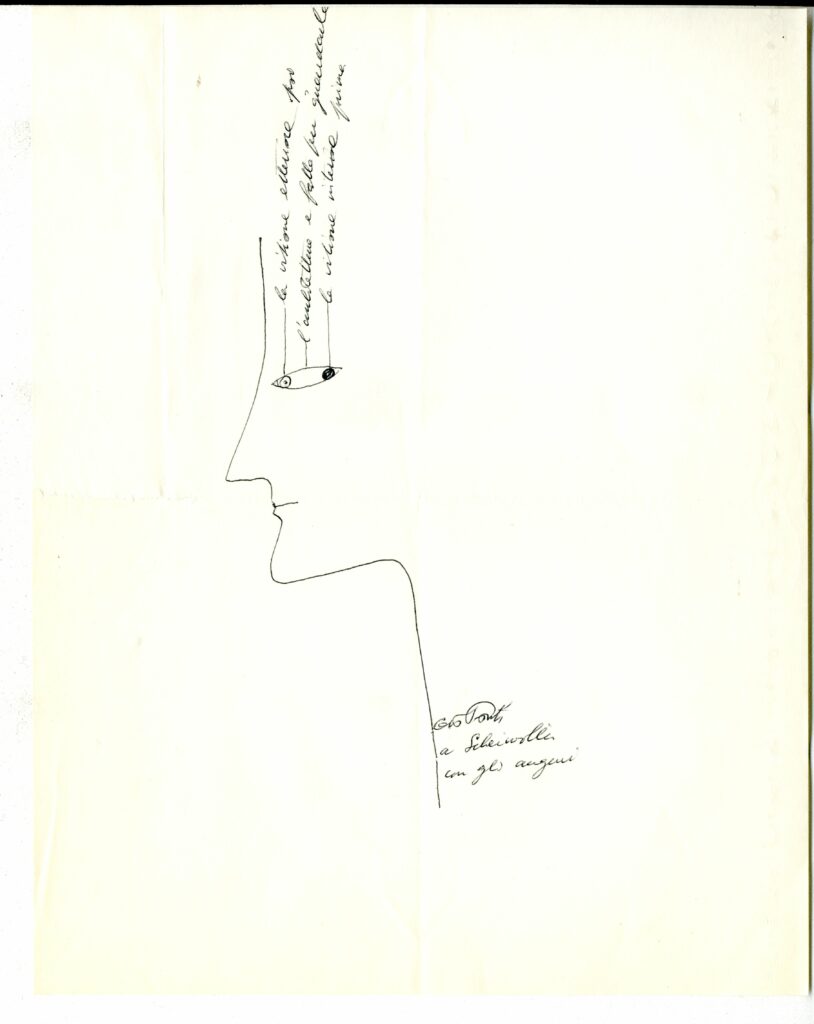 la visione esteriore poi
l'architettura è fatta per guardarla
la visione interiore prima
Gio Ponti
a Scheiwiller
con gli auguri